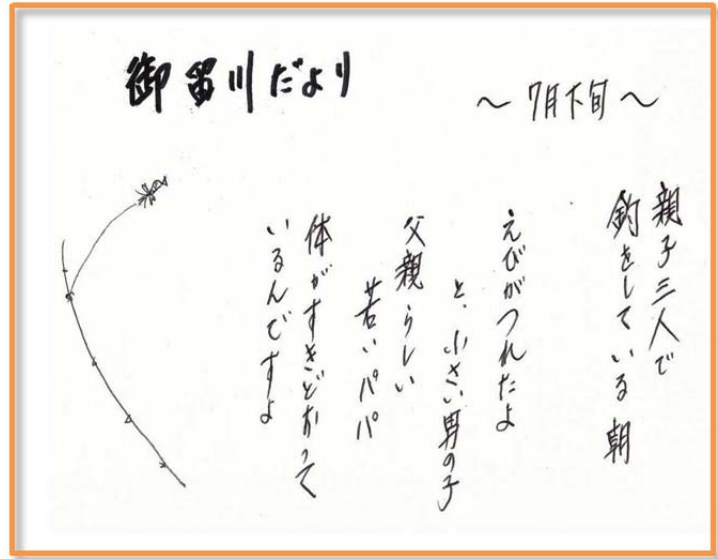 御留川だより
～7月下旬～
親子三人で
釣をしている朝
えびがつれたよ
と、小さい男の子
父親らしい
若いパパ
体がすきどおって
いるんですよ